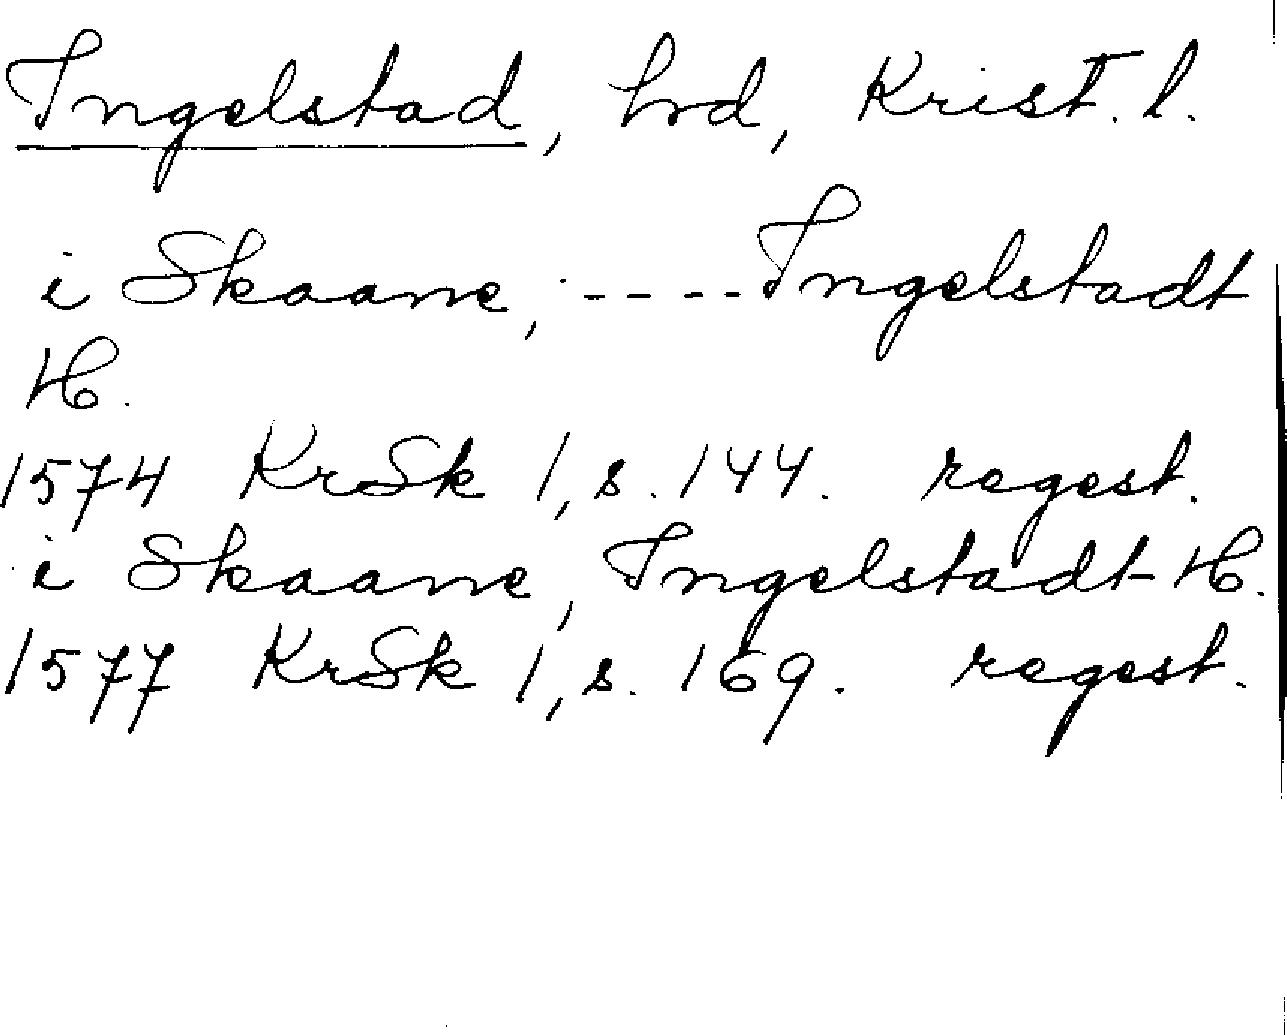 Ingelstad, hrd, Krist. l.
i Skaane, ---- Ingelstadt
H.
1574 KrSk 1, s. 144. regest.
i Skaane, Ingelstadt H.
1577 KrSk 1, s. 169. regest.